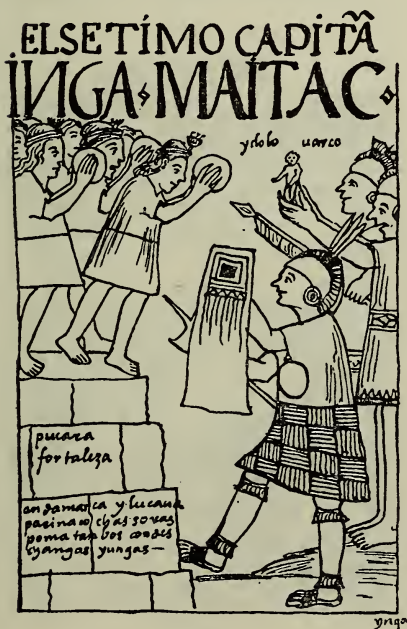 EL SETÍMO CAPITÃ
ÍNGA MAÍTAC
ydolo uarco
pucara
fortaleza
andamarca y lucana
parinacochas soras
pomatanbos condes
changas yungas—
ynga